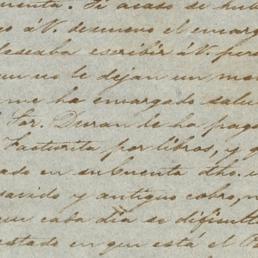 cuenta. Si acaso se hub
go á V. desmeno el encarg
deseaba escribir á V. pero
que no le dejan un mom
me ha encargado salu
Sor. Duran le ha pago
Facturita por libros, y q
ado en su cuenta dho. i
savido y antiguo cobro, n
que cada dia se dificult
estado en que está el